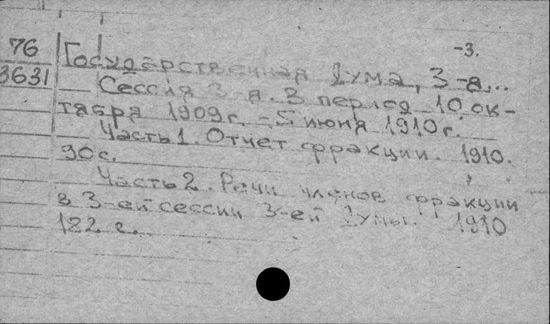 -3.
76
3631
Государственная Дума, 3-я...
Сессия 3-я. В период 10 ок-
тября 1909 г. - 5 июня 1910 г.
Часть 1. Отчет фракции. 1910.
90 с.
Часть 2. Речи членов фракции
в 3-ей сессии 3-ей Думы. 1910
122 с.